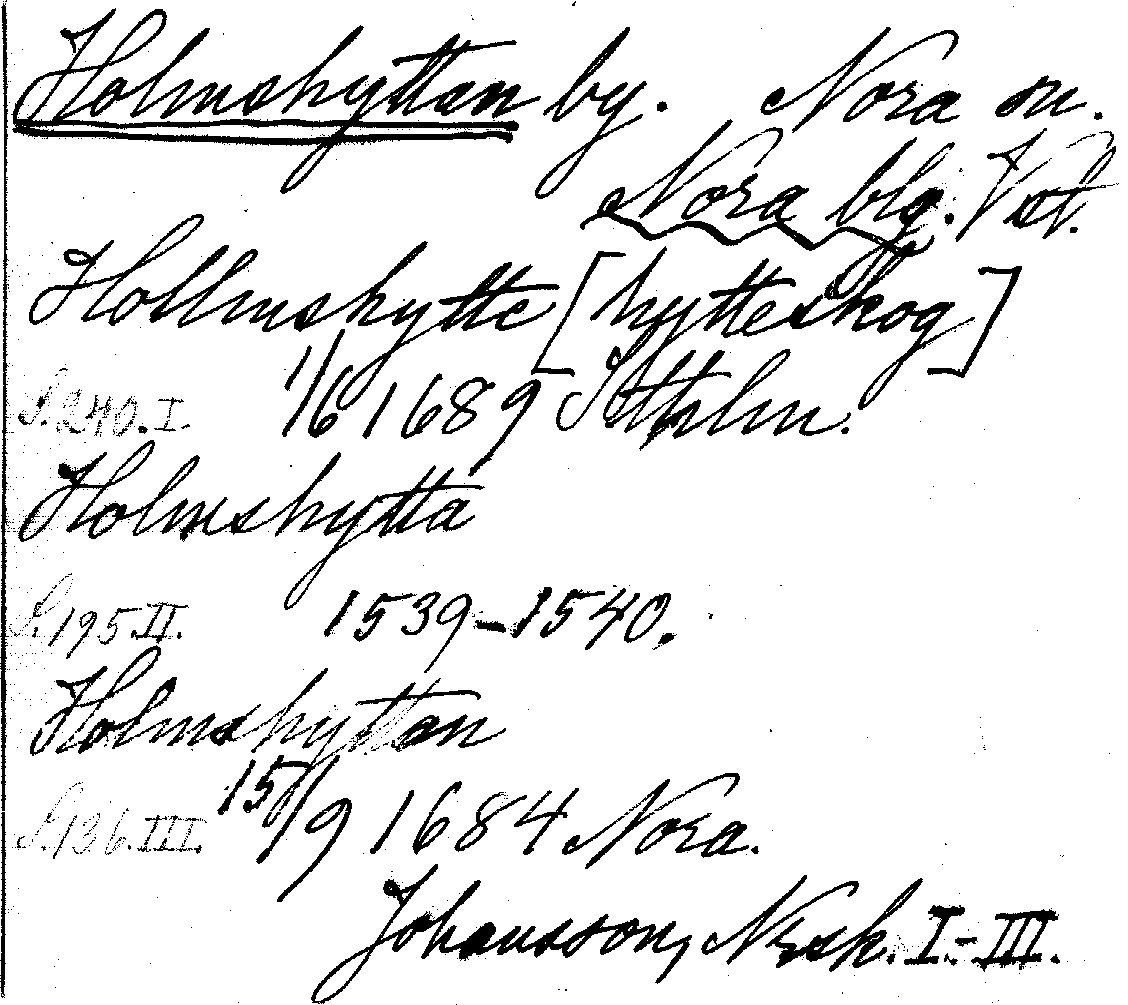 Holmshyttan by. Nora sn.
Nora blg. Vstl.
Hollmshytte [hytteskog]
S. 240. I. 1/6 1689 Sthlm.
Holmshytta
S. 195. II. 1539–1540.
Holmshyttan
S. 136. III. 15/9 1684 Nora.
Johansson, Nrsk. I.-III.